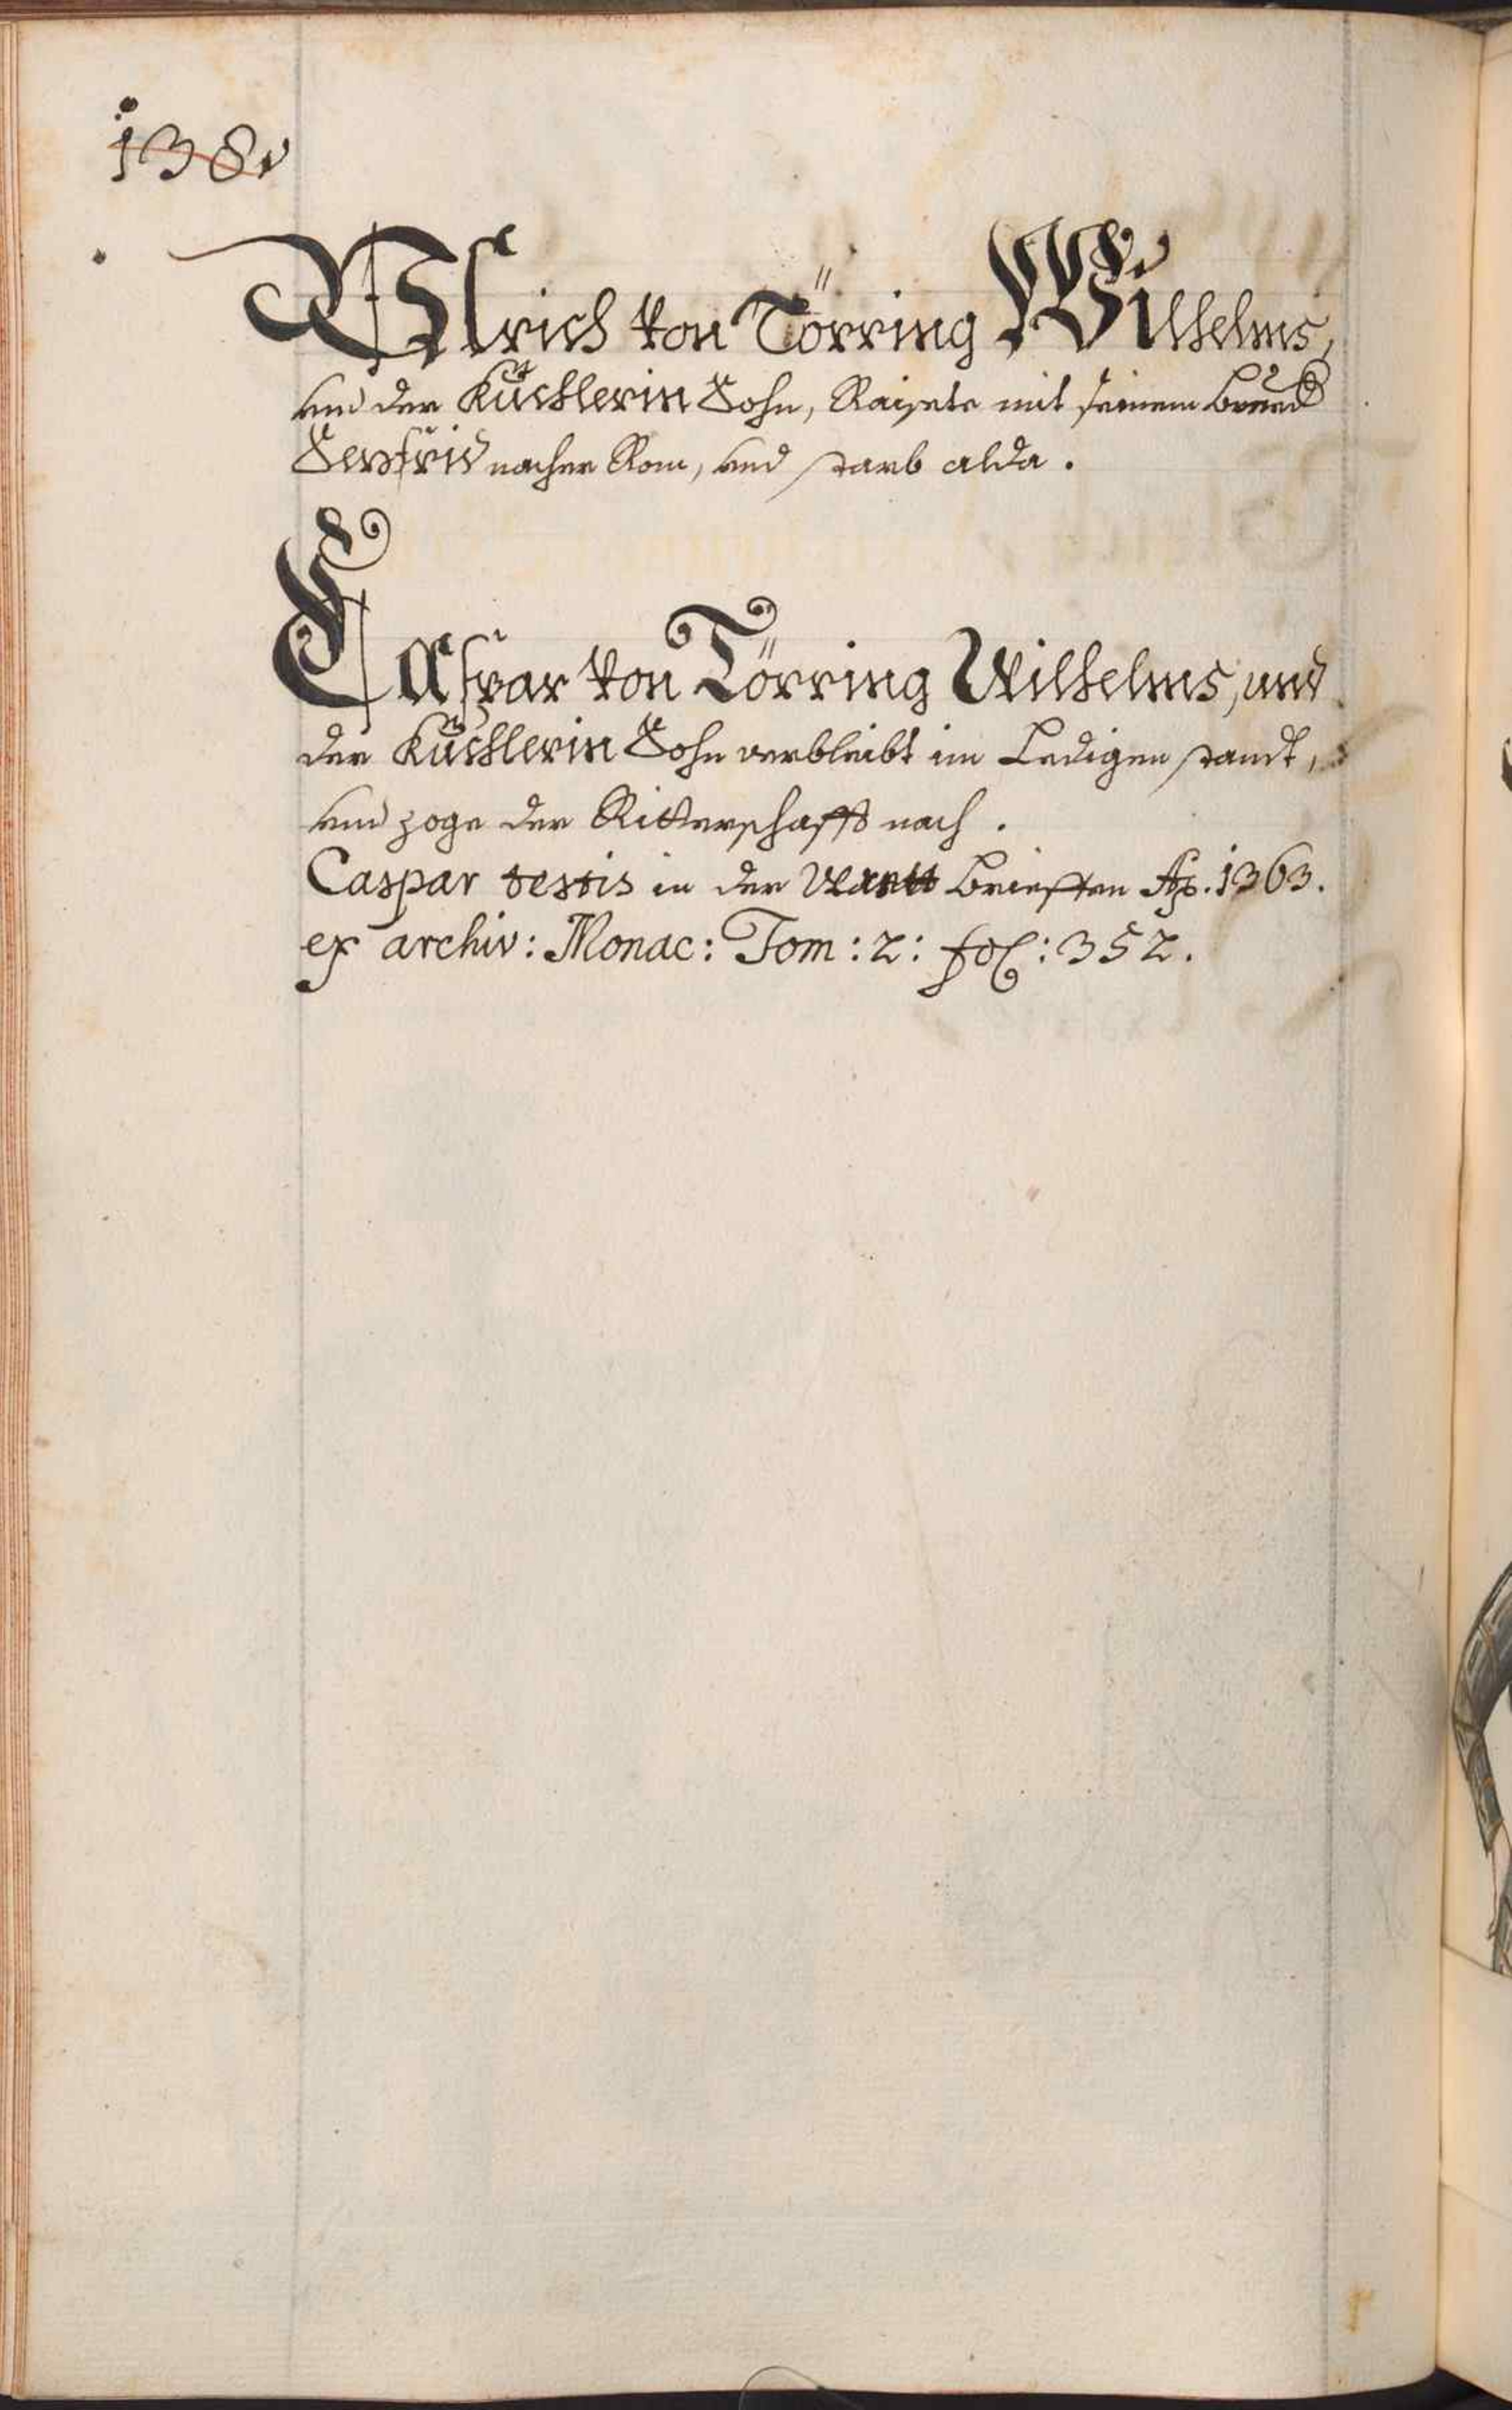 138v
Ulrich von Törring Wilhelms,
und der Küchlerin Sohn, Raisete mit seinem Brued
Seyfrid nacher Rom, und starb alda.
Caspar von Törring Wilhelms, und
der Küchlerin Sohn verbleibt im Ledigen standt,
und zoge der Ritterschafft nach.
Caspar testis in der Brieffen Ao. 1363.
ex archiv: Monac: Tom: 2: fol: 352.